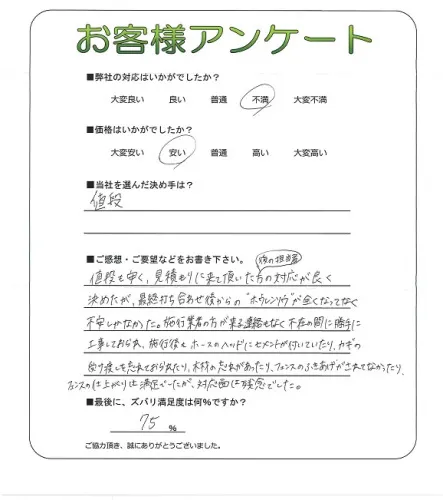 お客様アンケート
■弊社の対応はいかがでしたか？
大変良い 良い 普通 不満 大変不満
■価格はいかがでしたか？
大変安い 安い 普通 高い 大変高い
■当社を選んだ決め手は？
値段
■ご感想・ご要望などをお書き下さい。
値段も安く、見積もりに来て頂いた方の対応が良く
決めたが、最終打ち合わせ後からの"ホウレンソウ"が全くなってなく
不安しかなかった。施行業者の方が来る連絡もなく不在の間に勝手に
工事しておられ、施行後もホースのヘッドにセメントが付いていたり、カギの
受け渡しを忘れておられたり、木材の忘れがあったり、フェンスのふきあげがされてなかったり、
フェンスの仕上がりは満足でしたが、対応面は残念でした。
■最後に、ズバリ満足度は何％ですか？
75 ％
ご協力頂き、誠にありがとうございました。